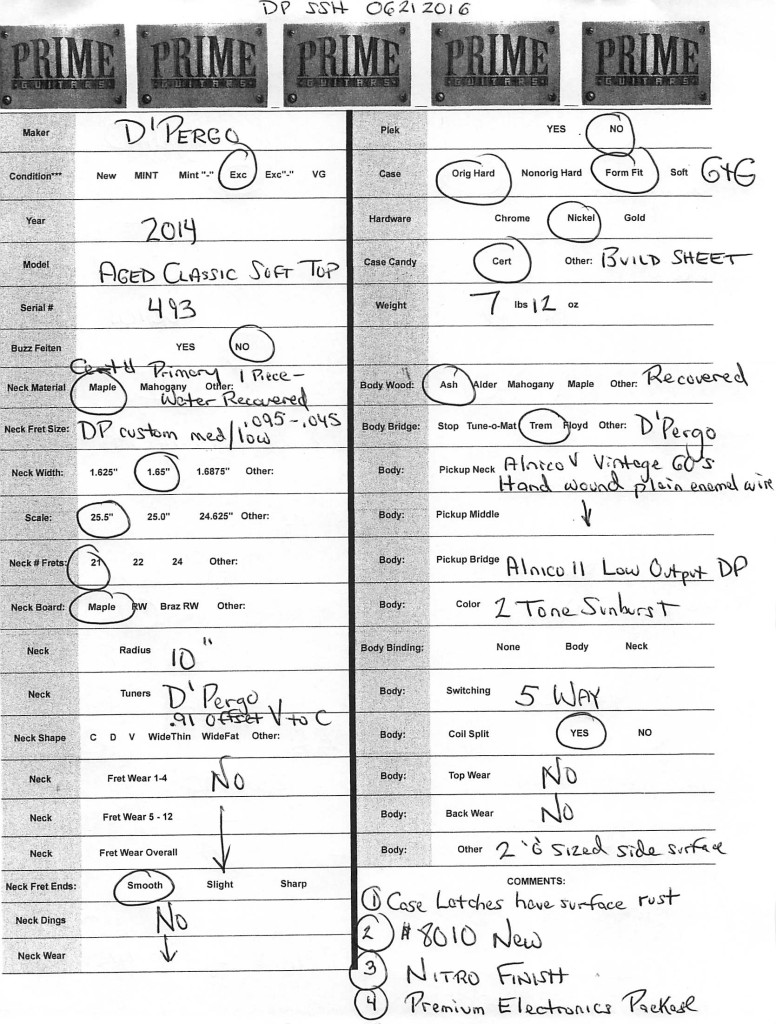 DP SSH 06212016
PRIME PRIME PRIME PRIME PRIME
GUITARS GUITARS GUITARS GUITARS GUITARS
Maker D'PERGO
Condition*** New MINT Mint "-" Exc Exc"-" VG
Year 2014
Model AGED CLASSIC SOFT TOP
Serial # 493
Buzz Feiten YES NO
Primary 1 Piece -
Neck Material Maple Mahogany Other:
Water Recovered
.095-.045
Neck Fret Size: DP custom med/low
Neck Width: 1.625" 1.65" 1.6875" Other:
Scale: 25.5" 25.0" 24.625" Other:
Neck # Frets: 21 22 24 Other:
Neck Board: Maple RW Braz RW Other:
Neck Radius 10"
Neck Tuners D'Pergo
.91 Offset V to C
Neck Shape C D V WideThin WideFat Other:
Neck Fret Wear 1-4 NO
Neck Fret Wear 5 - 12
Neck Fret Wear Overall
Neck Fret Ends: Smooth Slight Sharp
Neck Dings NO
Neck Wear
Plek YES NO
Case Orig Hard Nonorig Hard Form Fit Soft G+G
Hardware Chrome Nickel Gold
Case Candy Cert Other: BUILD SHEET
Weight 7 lbs 12 oz
Body Wood: Ash Alder Mahogany Maple Other: Recovered
Body Bridge: Stop Tune-o-Mat Trem Floyd Other: D'Pergo
Body: Pickup Neck Alnico V Vintage 60's
Hand wound plain enamel wire
Body: Pickup Middle
Body: Pickup Bridge Alnico II Low Output DP
Body: Color 2 Tone Sunburst
Body Binding: None Body Neck
Body: Switching 5 WAY
Body: Coil Split YES NO
Body: Top Wear NO
Body: Back Wear NO
Body: Other sized side surface
COMMENTS:
1 Case Latches have surface rust
2 #8010 New
3 NITRO FINISH
4 Premium Electronics Package